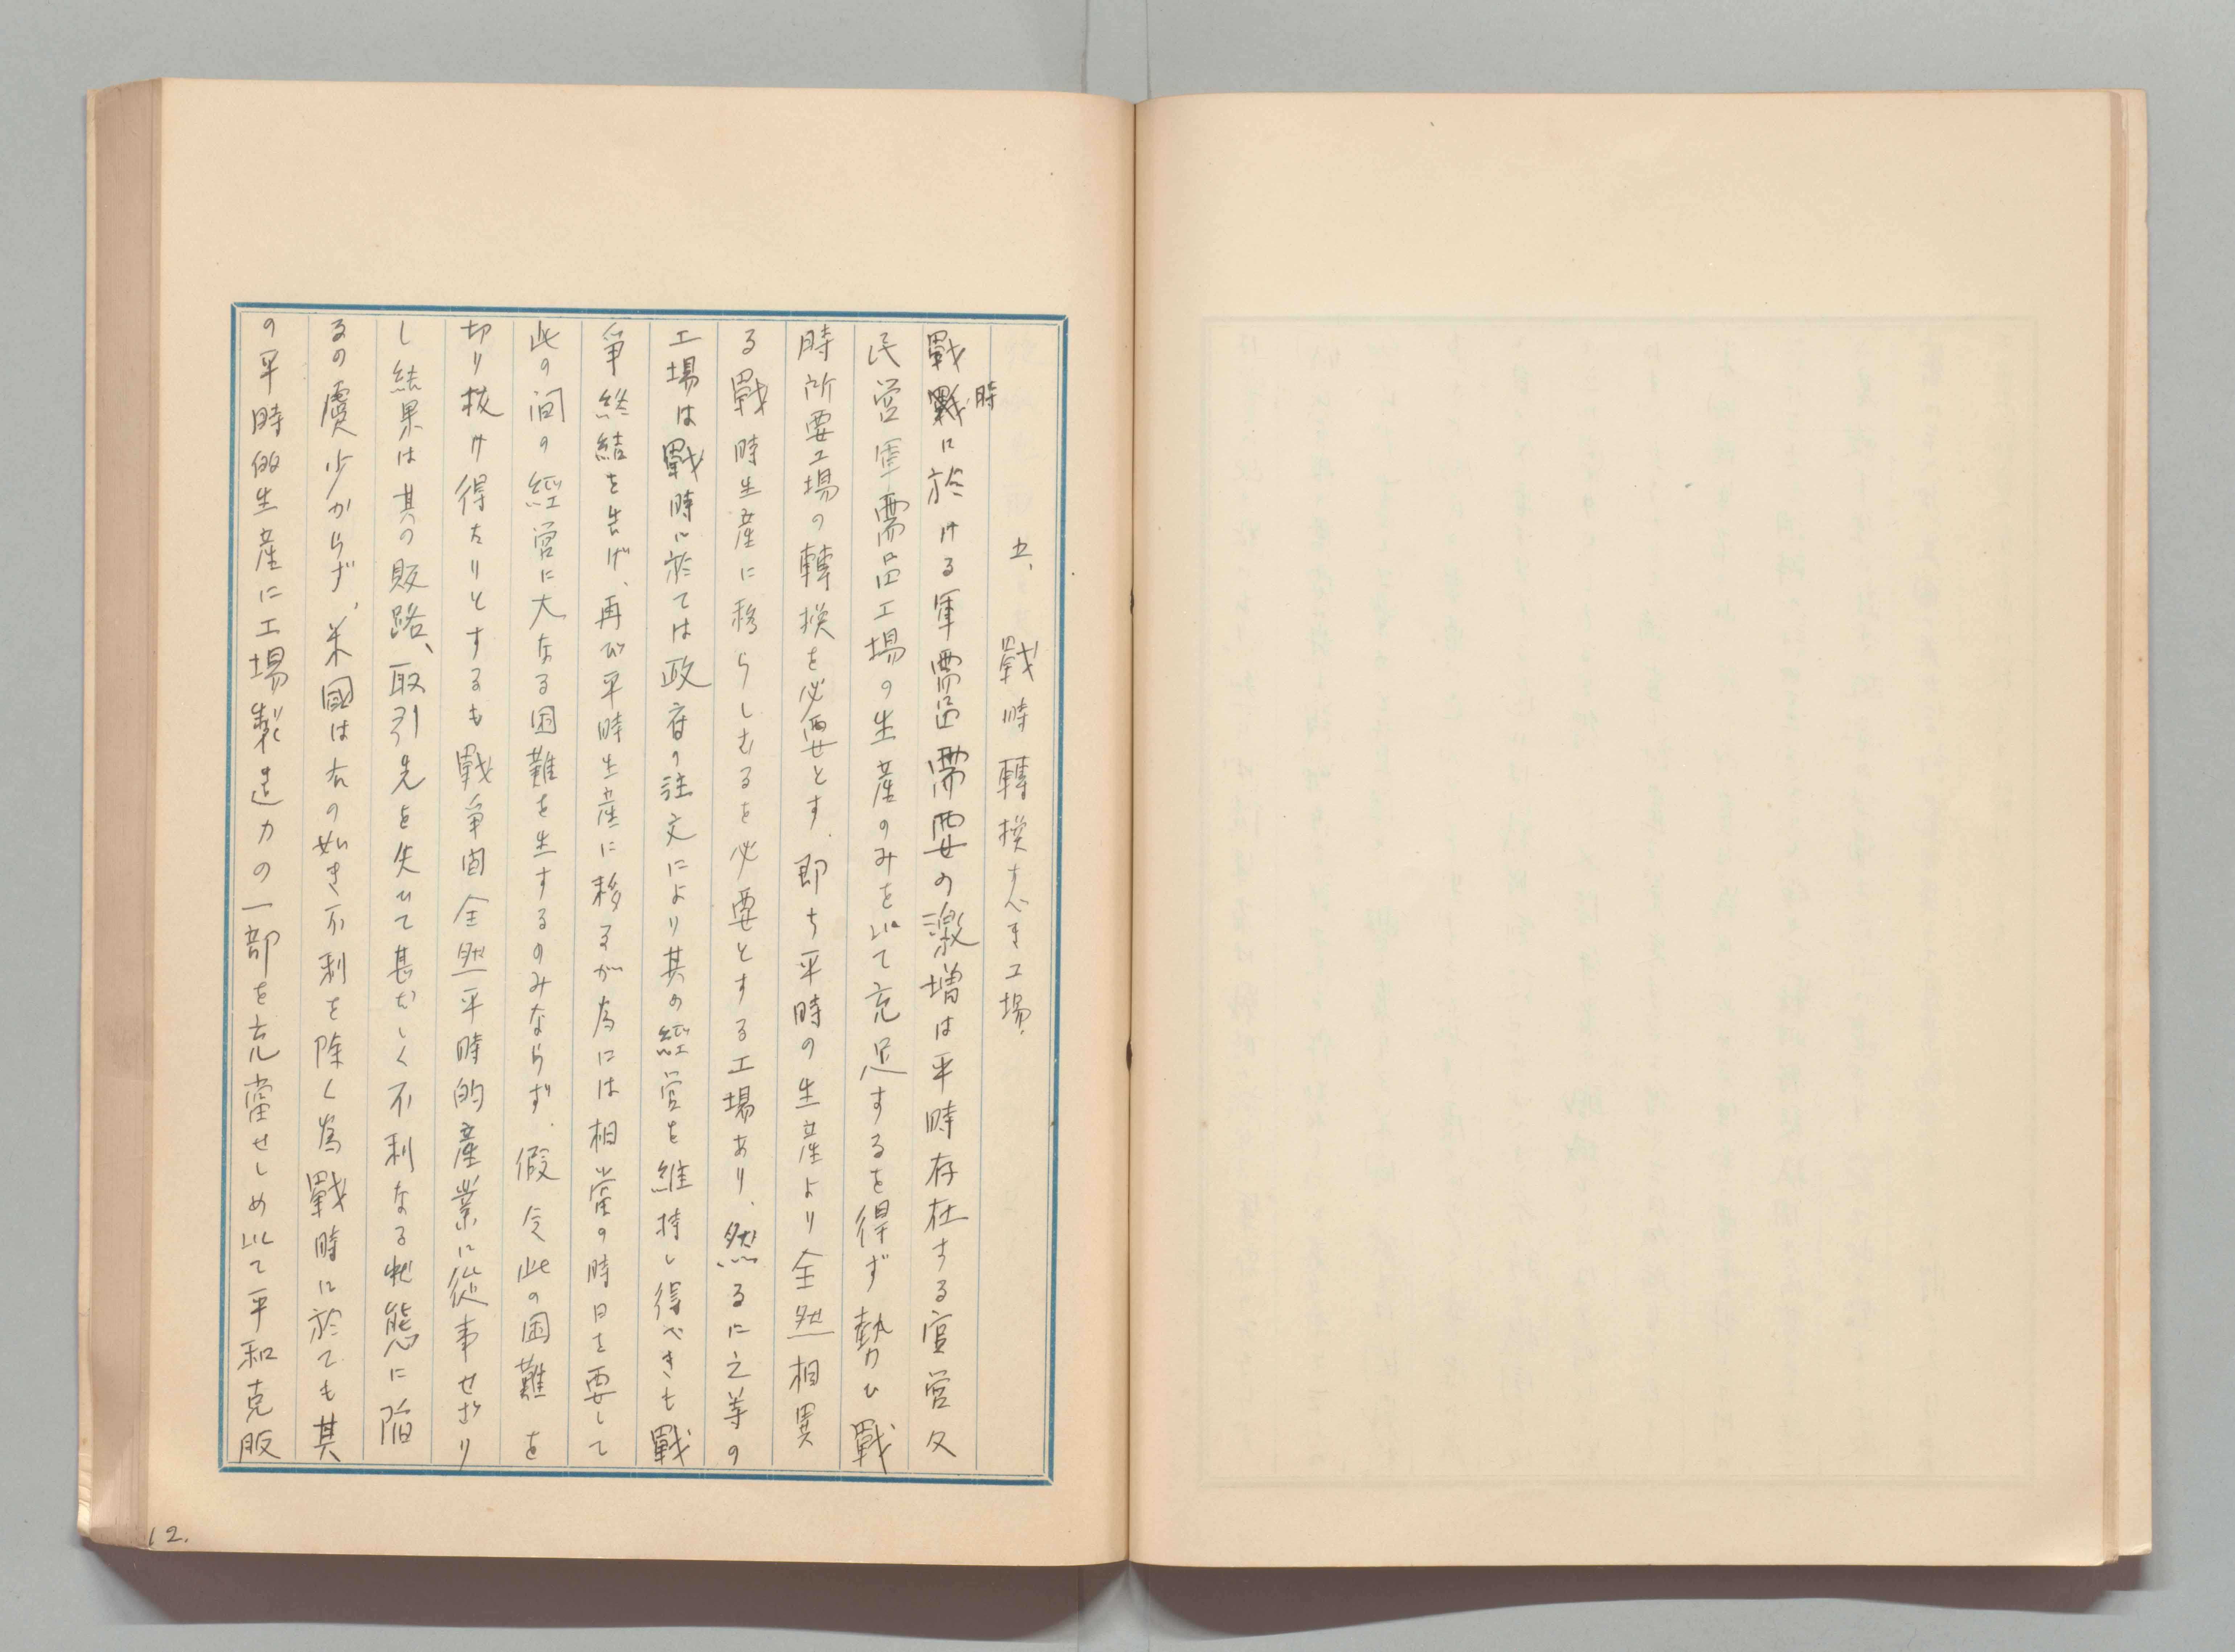 五、戰時轉換すべき工場.
戰時に於ける軍需品需要の激増は平時存在する官営又
民営軍需品工場の生産のみを以て充足するを得ず勢ひ戰
時所要工場の轉換を必要とす.即ち平時の生産より全然相異
る戰時生産に移らしむるを必要とする工場あり.然るに之等の
工場は戰時に於ては政府の注文により其の経営を維持し得べきも戰
爭終結を告げ、再び平時生産に移るが為には相當の時日を要して
此の间の經営に大なる困難を生ずるのみならず.假令此の困難を
切り抜け得たりとするも戰爭间全然平時的産業に從事せざり
し結果は其の販路、取引先を失ひて甚だしく不利なる状態に陥
るの虞少からず、米國は右の如き不利を除く為戰時に於ても其
の平時的生産に工場製造力の一部を充當せしめ以て平和克服
12.